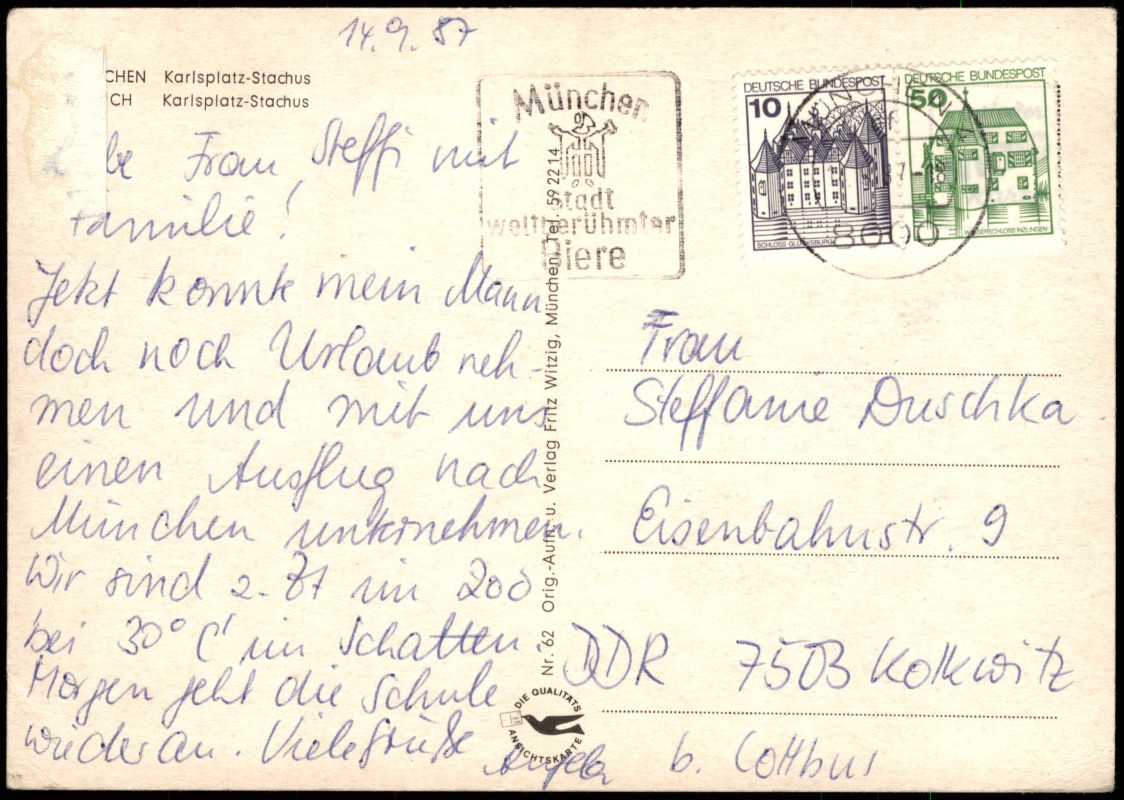 14.9.87
CHEN Karlsplatz-Stachus
CH Karlsplatz-Stachus
be Frau Steffi mit
Familie!
Jetzt konnte mein Mann
doch noch Urlaub neh-
men und mit uns
einen Ausflug nach
München unternehmen.
Wir sind z. Zt im Zoo
bei 30° C im Schatten
Morgen geht die Schule
wieder an. Viele Grüße
Angela
München
Stadt
weltberühmter
Biere
DEUTSCHE BUNDESPOST
10
SCHLOSS GLÜCKSBURG
DEUTSCHE BUNDESPOST
50
WASSERSCHLOSS INZLINGEN
8000
Nr. 62 Orig.-Aufn. u. Verlag Fritz Witzig, München, Tel. 59 22 14
DIE QUALITÄTS
ANSICHTSKARTE
Frau
Steffanie Duschka
Eisenbahnstr. 9
DDR 7503 Kolkwitz
b. Cottbus